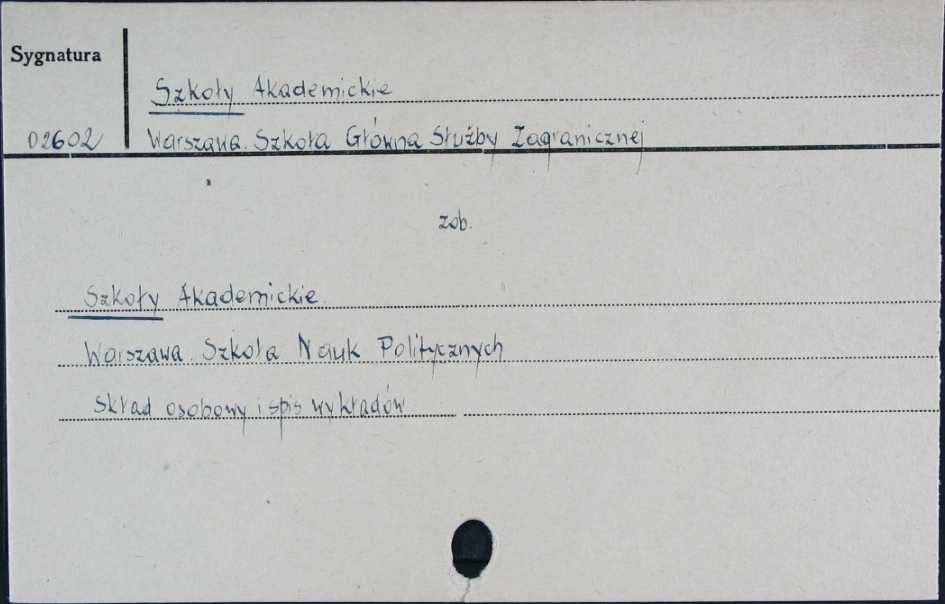 Sygnatura
Szkoły Akademickie
02602 Warszawa. Szkoła Główna Służby Zagranicznej
zob.
Szkoły Akademickie
Warszawa. Szkoła Nauk Politycznych
skład osobowy i spis wykładów